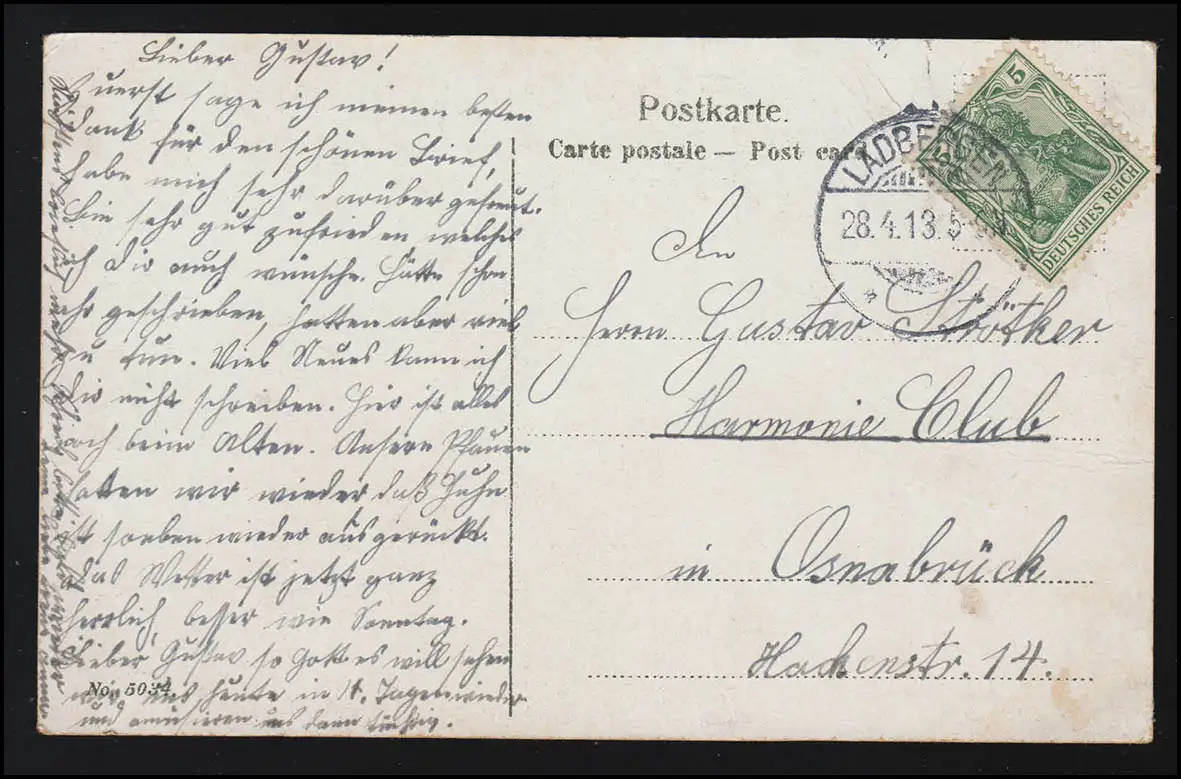 Lieber Gustav!
Zuerst sage ich meinen besten
Dank für den schönen Brief,
habe mich sehr darüber gefreut.
Bin sehr gut zufrieden, welches
ich Dir auch wünsche. Hätte schon
ehr geschrieben, hatten aber viel
zu tun. Viel Neues kann ich
Dir nicht schreiben. Hier ist alles
noch beim Alten. Unsern Pfauen
hatten wir wieder daß Huhn
ist soeben wieder ausgerückt.
Das Wetter ist jetzt ganz
herrlich, besser wie Sonntag.
Lieber Gustav so Gott es will sehen
wir uns heute in 14. Tagen wieder
und amüsieren uns dann tüchtig.
No. 5034.
Postkarte.
Carte postale — Post card
LADBERGEN
28.4.13.5-6N
5
DEUTSCHES REICH
An
Herrn Gustav Strötker
Harmonie Club
in Osnabrück
Hakenstr. 14.